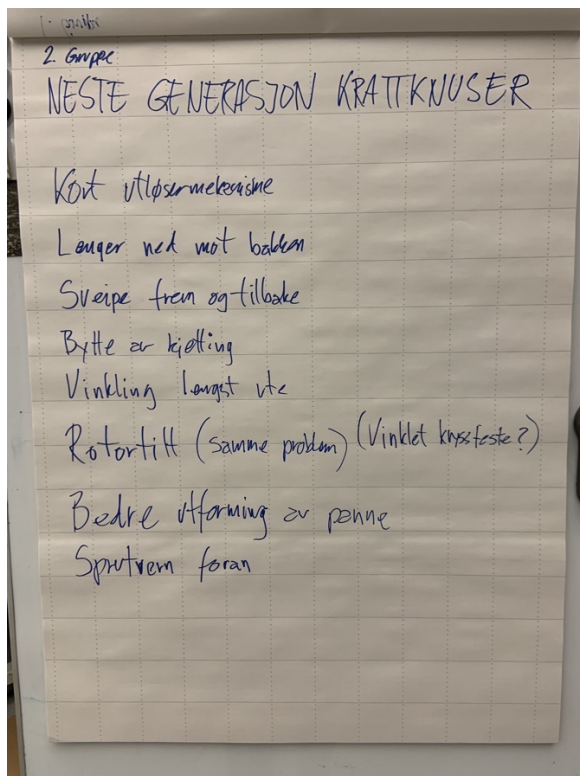 2. Gruppe
NESTE GENERASJON KRATTKNUSER
Kort utløsermekanisme
Lenger ned mot bakken
Sveipe frem og tilbake
Bytte av kjetting
Vinkling lengst ute
Rotortilt (samme problem) (Vinklet kryssfeste?)
Bedre utforming av panne
Sprutvern foran